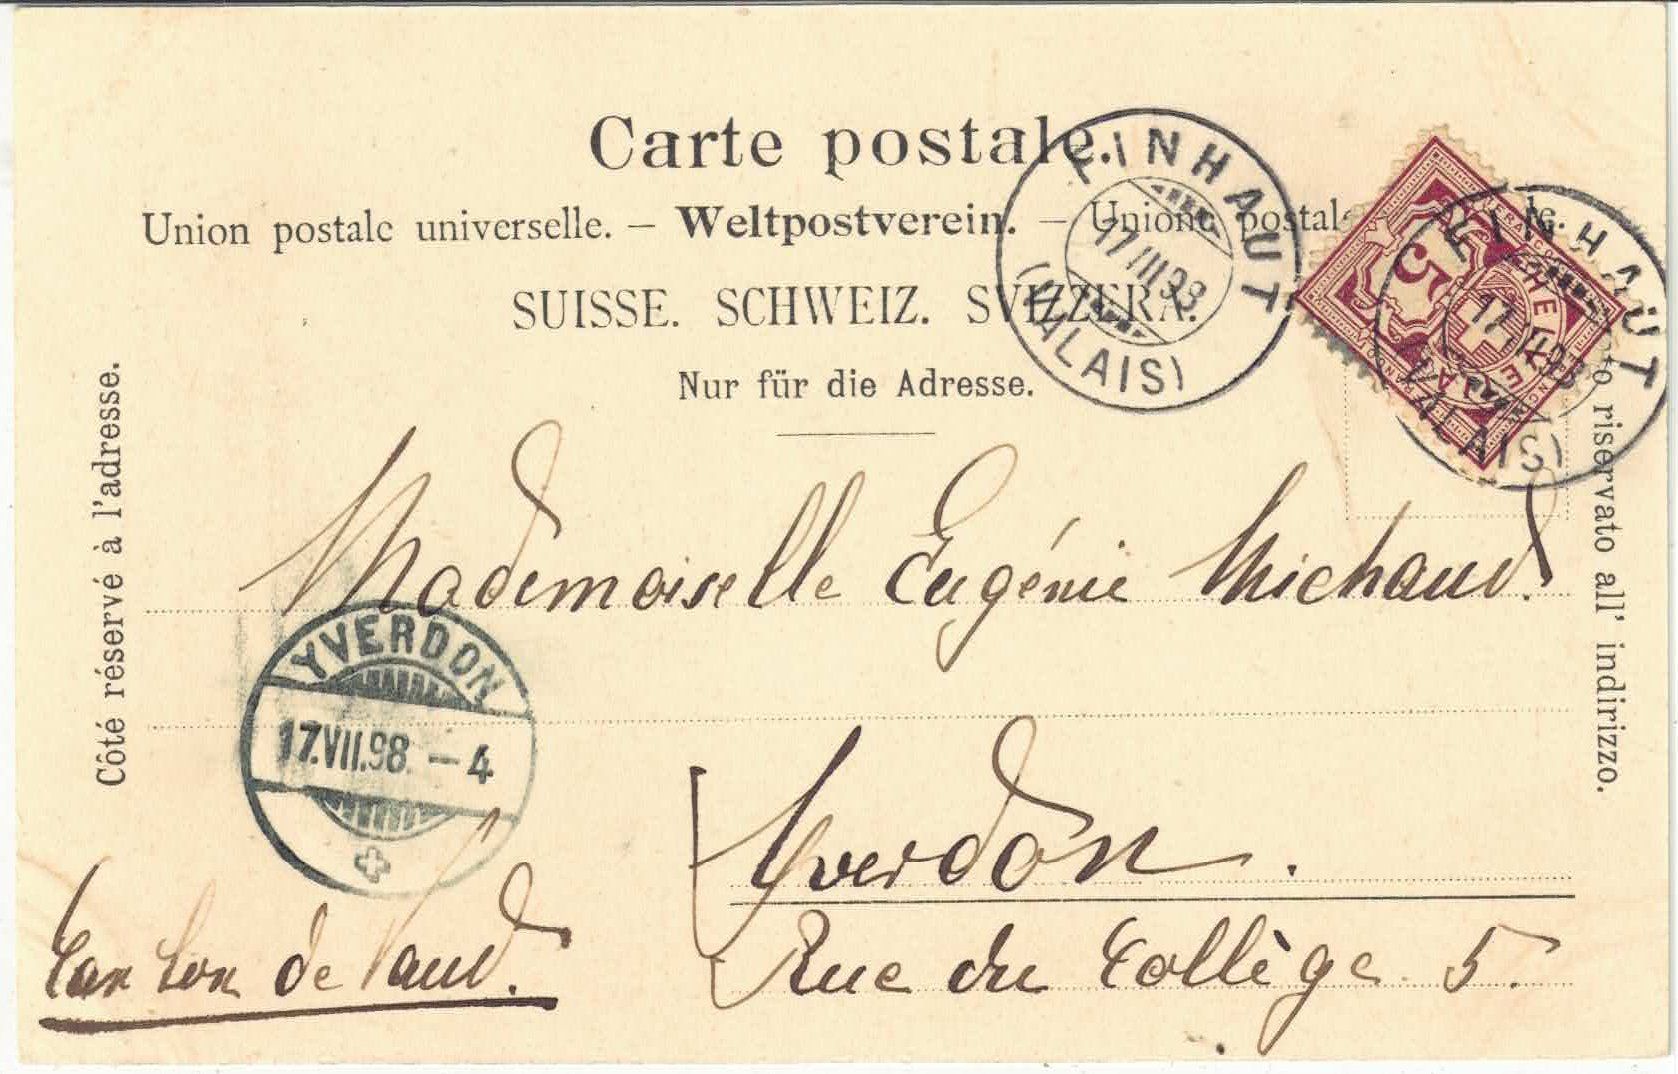 Carte postale.
Union postale universelle. – Weltpostverein. – Unione postale
SUISSE. SCHWEIZ. SVIZZERA.
Nur für die Adresse.
Côté réservé à l'adresse.
riservato all' indirizzo.
FINHAUT
17 VII 98
(VALAIS)
FINHAUT
17 VII 98
(VALAIS)
5
HELVETIA
Mademoiselle Eugénie Michaud.
YVERDON
17.VII.98. – 4
Yverdon.
Rue du Collège 5.
Canton de Vaud.